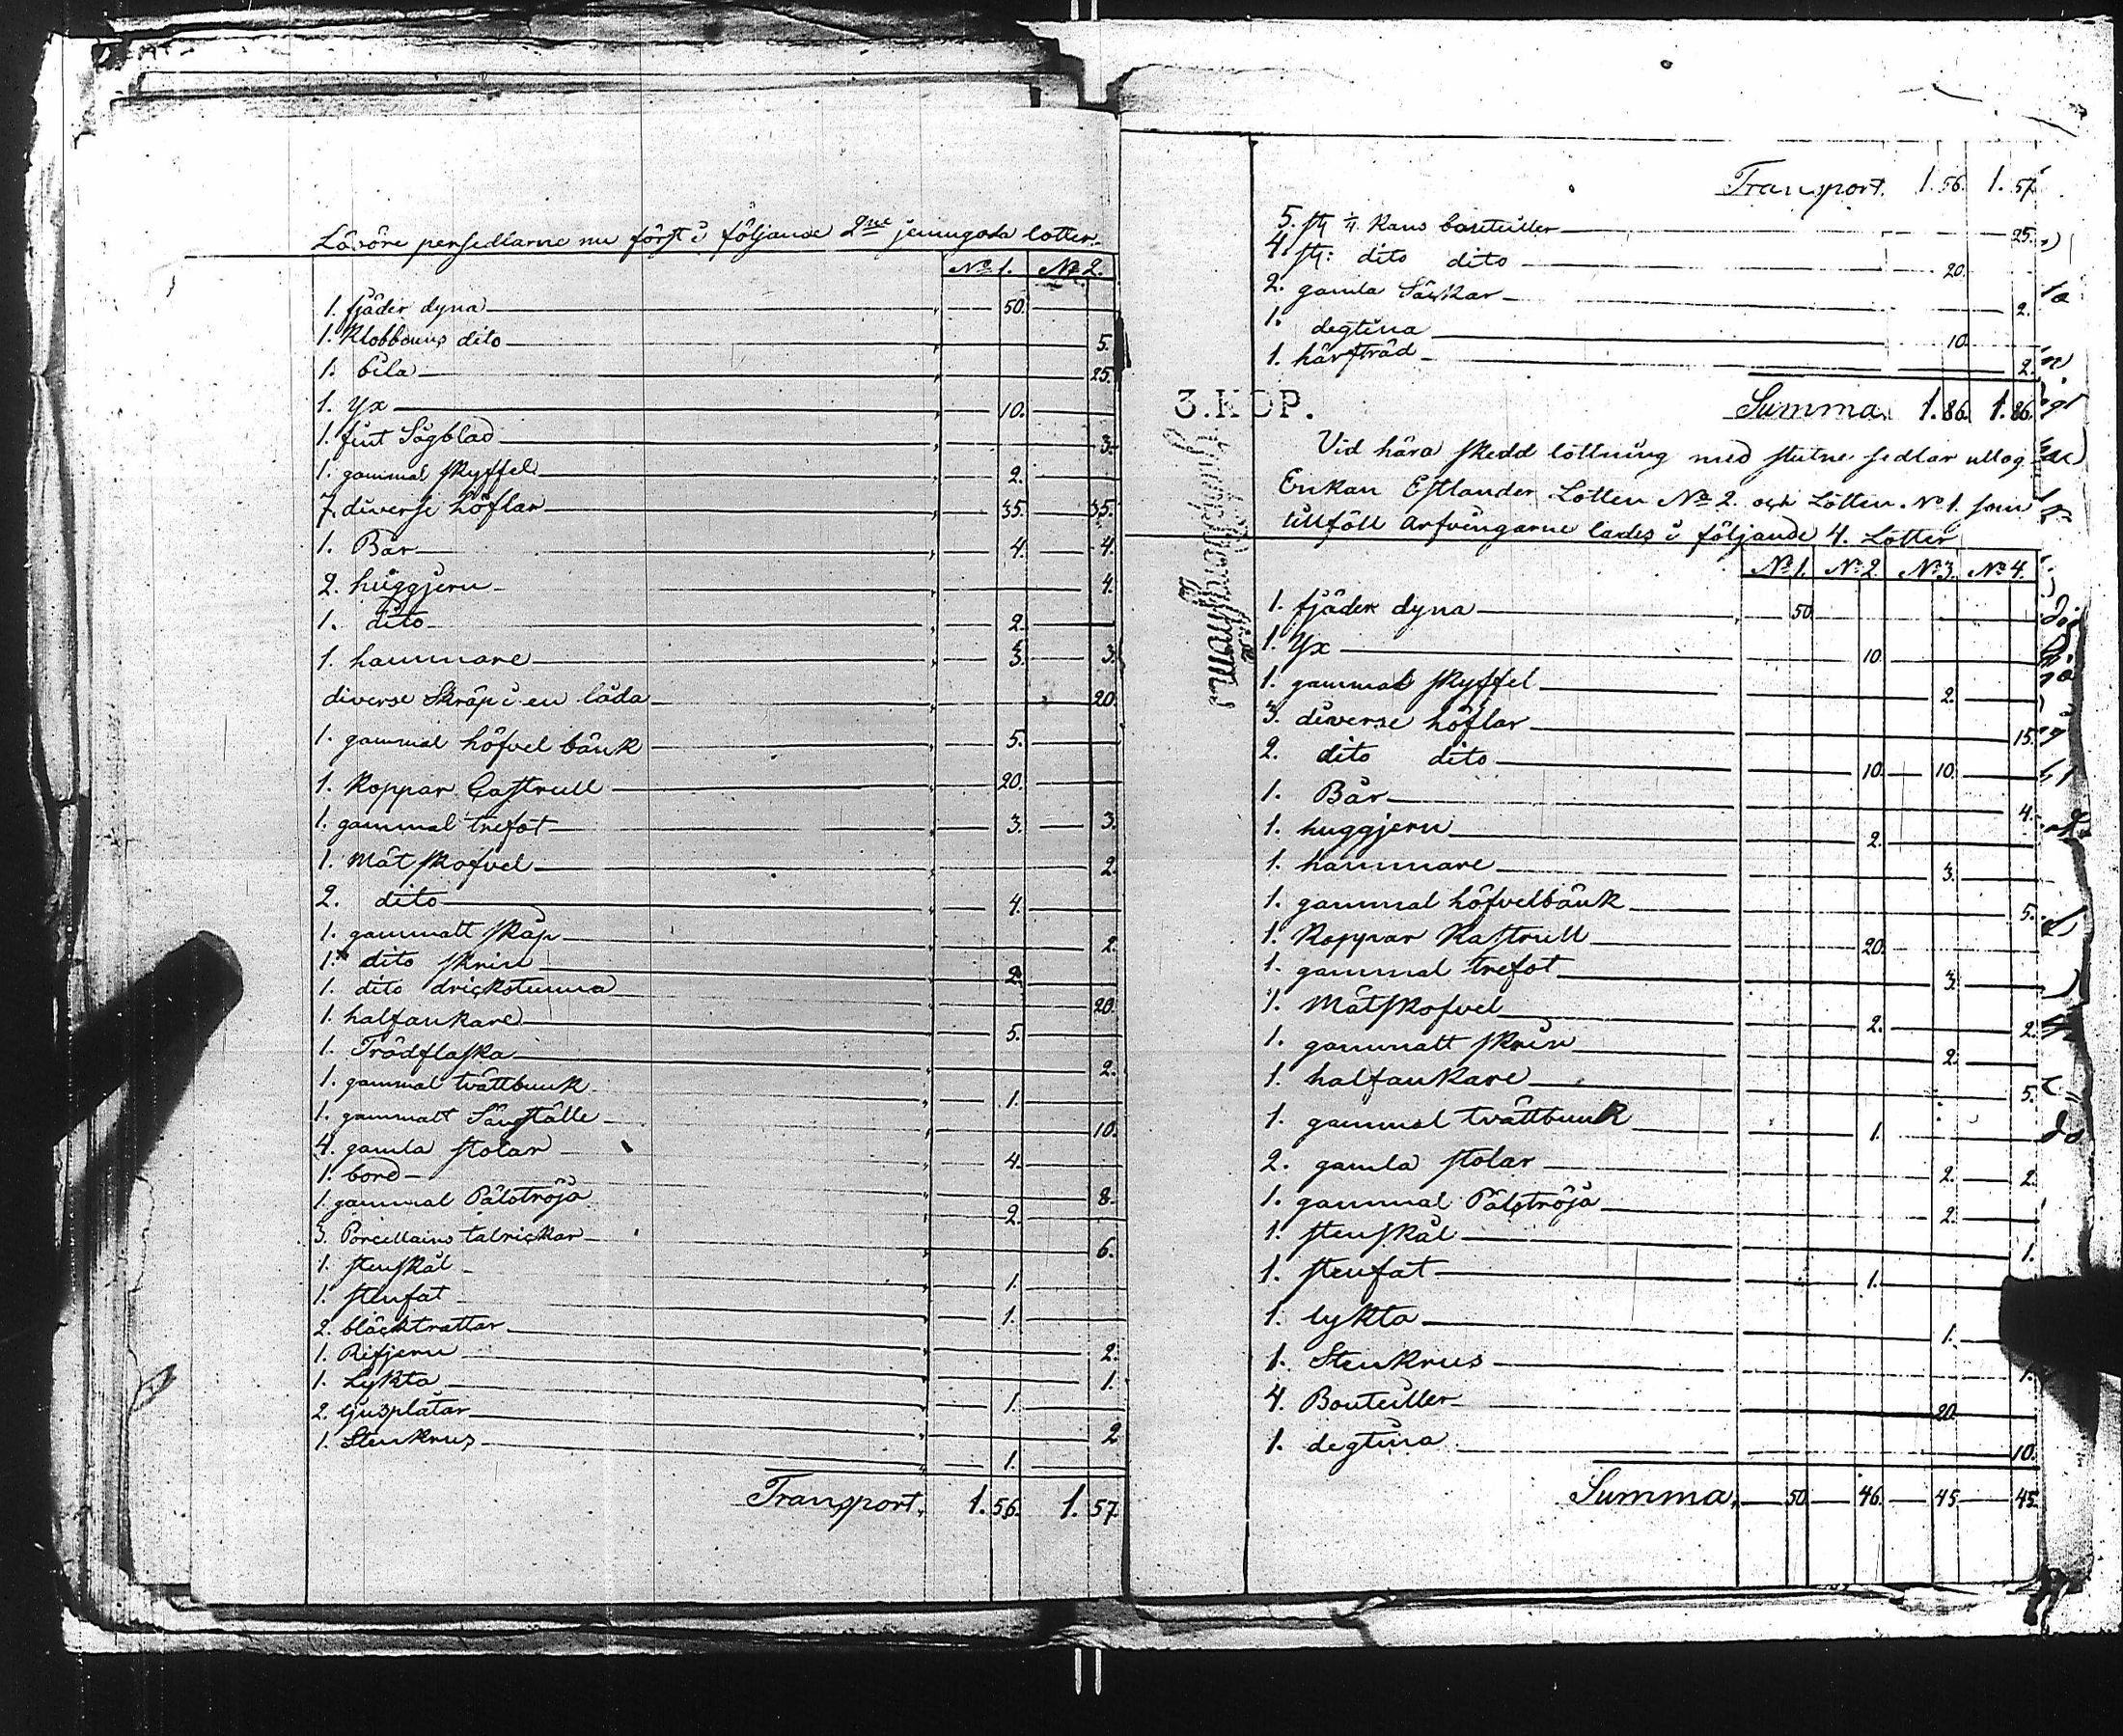 Lösöre persedlarne nu först i följande 2ne jemngoda lotter.
No 1. No 2.
1. fjäder dyna 50.
1. Klobbduns dito 5.
1. bila 25.
1. yx 10.
1. fint Sågblad 3.
1. gammal skyffel 2.
7. diverse höflar 35. 35.
1. Bår 4. 4.
2. huggjern 4.
1. dito 2.
1. hammare 3. 3.
diverse Skräp i en låda 20.
1. gammal höfvel bänk 5.
1. Koppar Castrull 20.
1. gammal trefot 3. 3.
1. Måt skofvel 2.
2. dito 4.
1. gammalt skåp 2.
1. dito skrin 2.
1. dito drickstunna 20.
1. halfankare 5.
1. Trädflaska 2.
1. gammal tvättbunk 1.
1. gammalt Sängställe 10.
4. gamla stolar 4.
1. bord 8.
1. gammal Pälströja 2.
3. Porcellains talrickar 6.
1. stenskål 1.
1. stenfat 1.
2. bläcktrattar 2.
1. Rifjern 1.
1. Lykta 1.
2. ljusplåtar 2
1. Stenkrus 1.
Transport, 1.56. 1.57.
Transport. 1.56. 1.57.
5. st 1/4 Kans bouteiller 25.
4. st: dito dito 20.
2. gamla Säckar 2.
1. degtina 10.
1. härfträd 2.
3.KOP.
Summa. 1.86. 1.86.
Vid håra skedd lottning med slutne sedlar uttog
Enkan Estlander Lotten No 2. och Lotten No 1. som
tillföll Arfvingarne lades i följande 4. Lotter
No 1. No 2. No 3. No 4.
1. fjäder dyna 50.
1. Yx 10.
1. gammal skyffel 2.
3. diverse höflar 15.
2. dito dito 10. 10.
1. Bår 4.
1. huggjern 2.
1. hammare 3.
1. gammal höfvelbänk 5.
1. Koppar Kastrull 20.
1. gammal trefot 3.
1. Måtskofvel 2. 2.
1. gammalt skrin 2.
1. halfankare 5.
1. gammal tvättbunk 1.
2. gamla stolar 2. 2.
1. gammal Pälströja 2.
1. stenskål 1.
1. stenfat 1.
1. lykta 1.
1. Stenkrus 1.
4. Bouteiller 20.
1. degtina 10.
Summa, 50. 46. 45. 45.